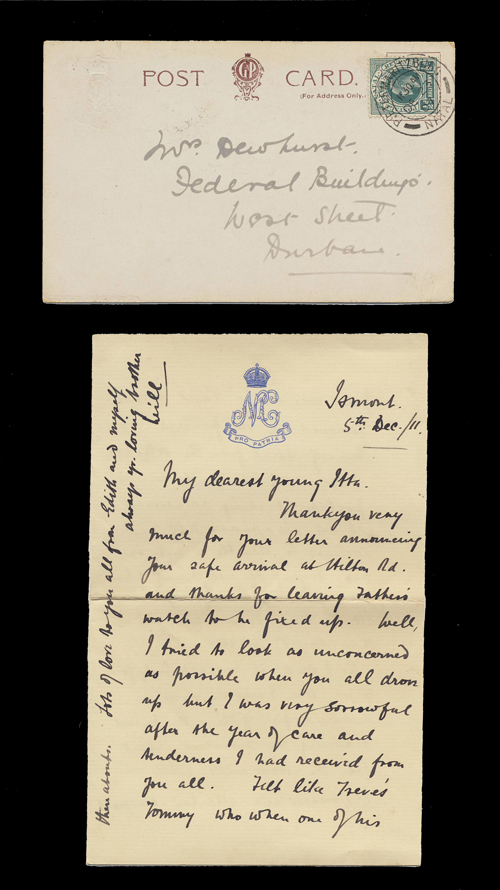 POST CARD.
(For Address Only.)
NATAL
Mrs Dewhurst.
Federal Buildings.
West Street.
Durban.
PRO PATRIA
Ismont.
5th Dec./11.
My dearest young Itta.
Thankyou very
much for your letter announcing
your safe arrival at Hilton Rd.
and thanks for leaving Father's
watch to be fixed up. Well,
I tried to look as unconcerned
as possible when you all drove
up but I was very sorrowful
after the year of care and
tenderness I had received from
you all. Felt like Treve's
Tommy who when one of his
then abouts. Lots of love to you all from Edith and myself
always yr. loving brother
Will